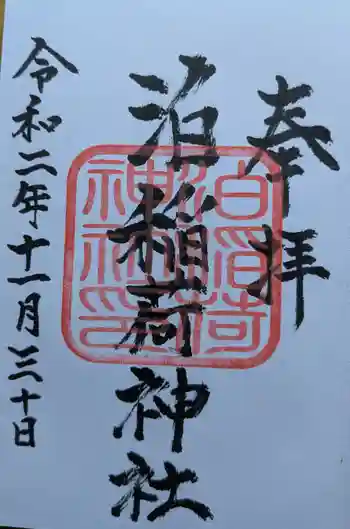 奉拝
泊稲荷神社
令和二年十一月三十日
泊稲荷
神社印